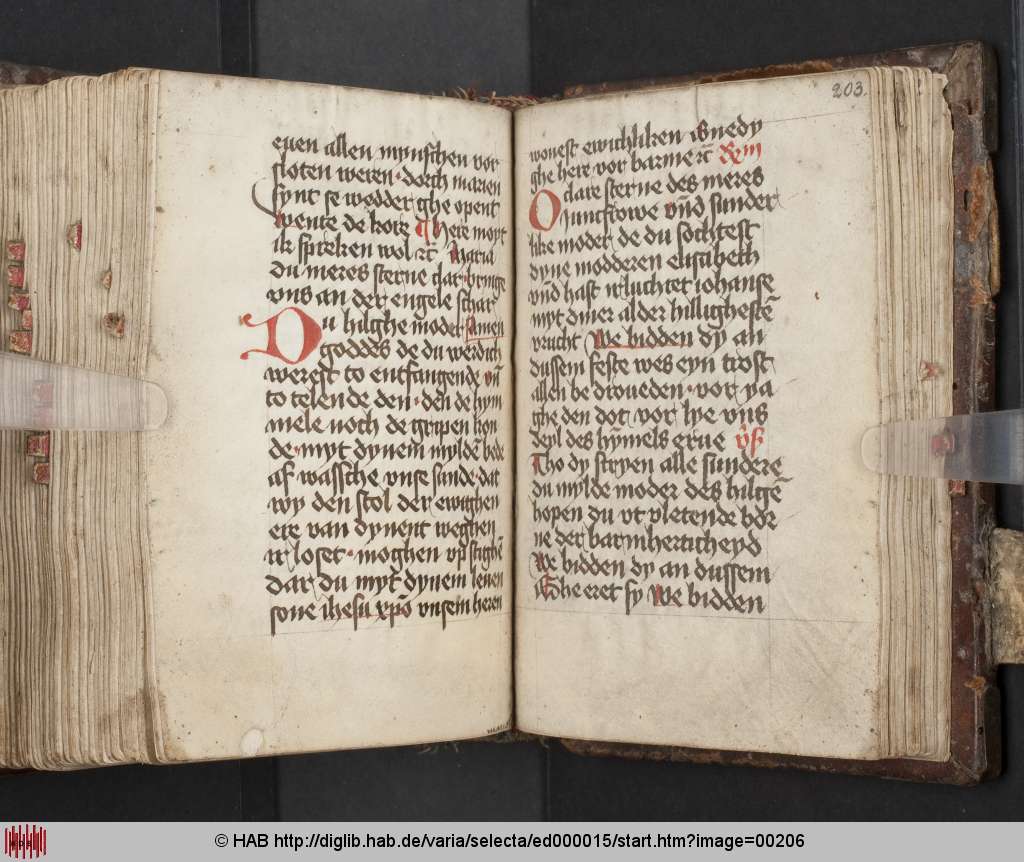 euen allen mynschen vor
sloten weren · dorch marien
synt se wedder ghe opent
wente de kore ¶ here mop
ik spreken wol rc̄ Maria
du meres sterne clar · bringe
vns an der engele schar
Du hilghe moder Amen
goddes de du werdich
werest to entfangende vn̄
to telende den · den de hym
mele noch de gripen kon
de · myt dynem myldē bede
af wassche vnse sunde · dat
wy den stol der ewighen
ere van dynent weghen
ir loset · moghen vp stighē
dar du myt dynem leuen
sone ihesu xp̄o vnsem heren
203.
wonest ewichliken Benedy
ghe here vor barme rc̄
O clare sterne des meres
iuncfrowe vn̄d sunder
like moder de du sochtest
dyne modderen elisabeth
vn̄d hast irluchtet iohanse
myt diner alder hillighestē
vrucht We bidden dy an
dussem feste wes eyn trost
allen be droueden · vor ya
ghe den dot vor lye vns
deyl des hymels erue
Tho dy scryen alle sundere
du mylde moder des hilgē
hopen du vt vletende bor
ne der barmherticheyd
We bidden dy an dussem
Ghe eret sy We bidden
© HAB http://diglib.hab.de/varia/selecta/ed000015/start.htm?image=00206